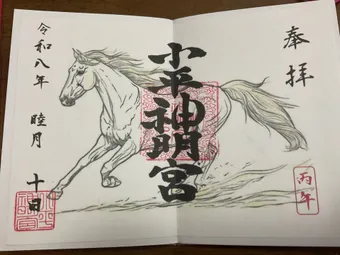 奉拝
丙午
小平神明宮
令和八年 睦月 十日